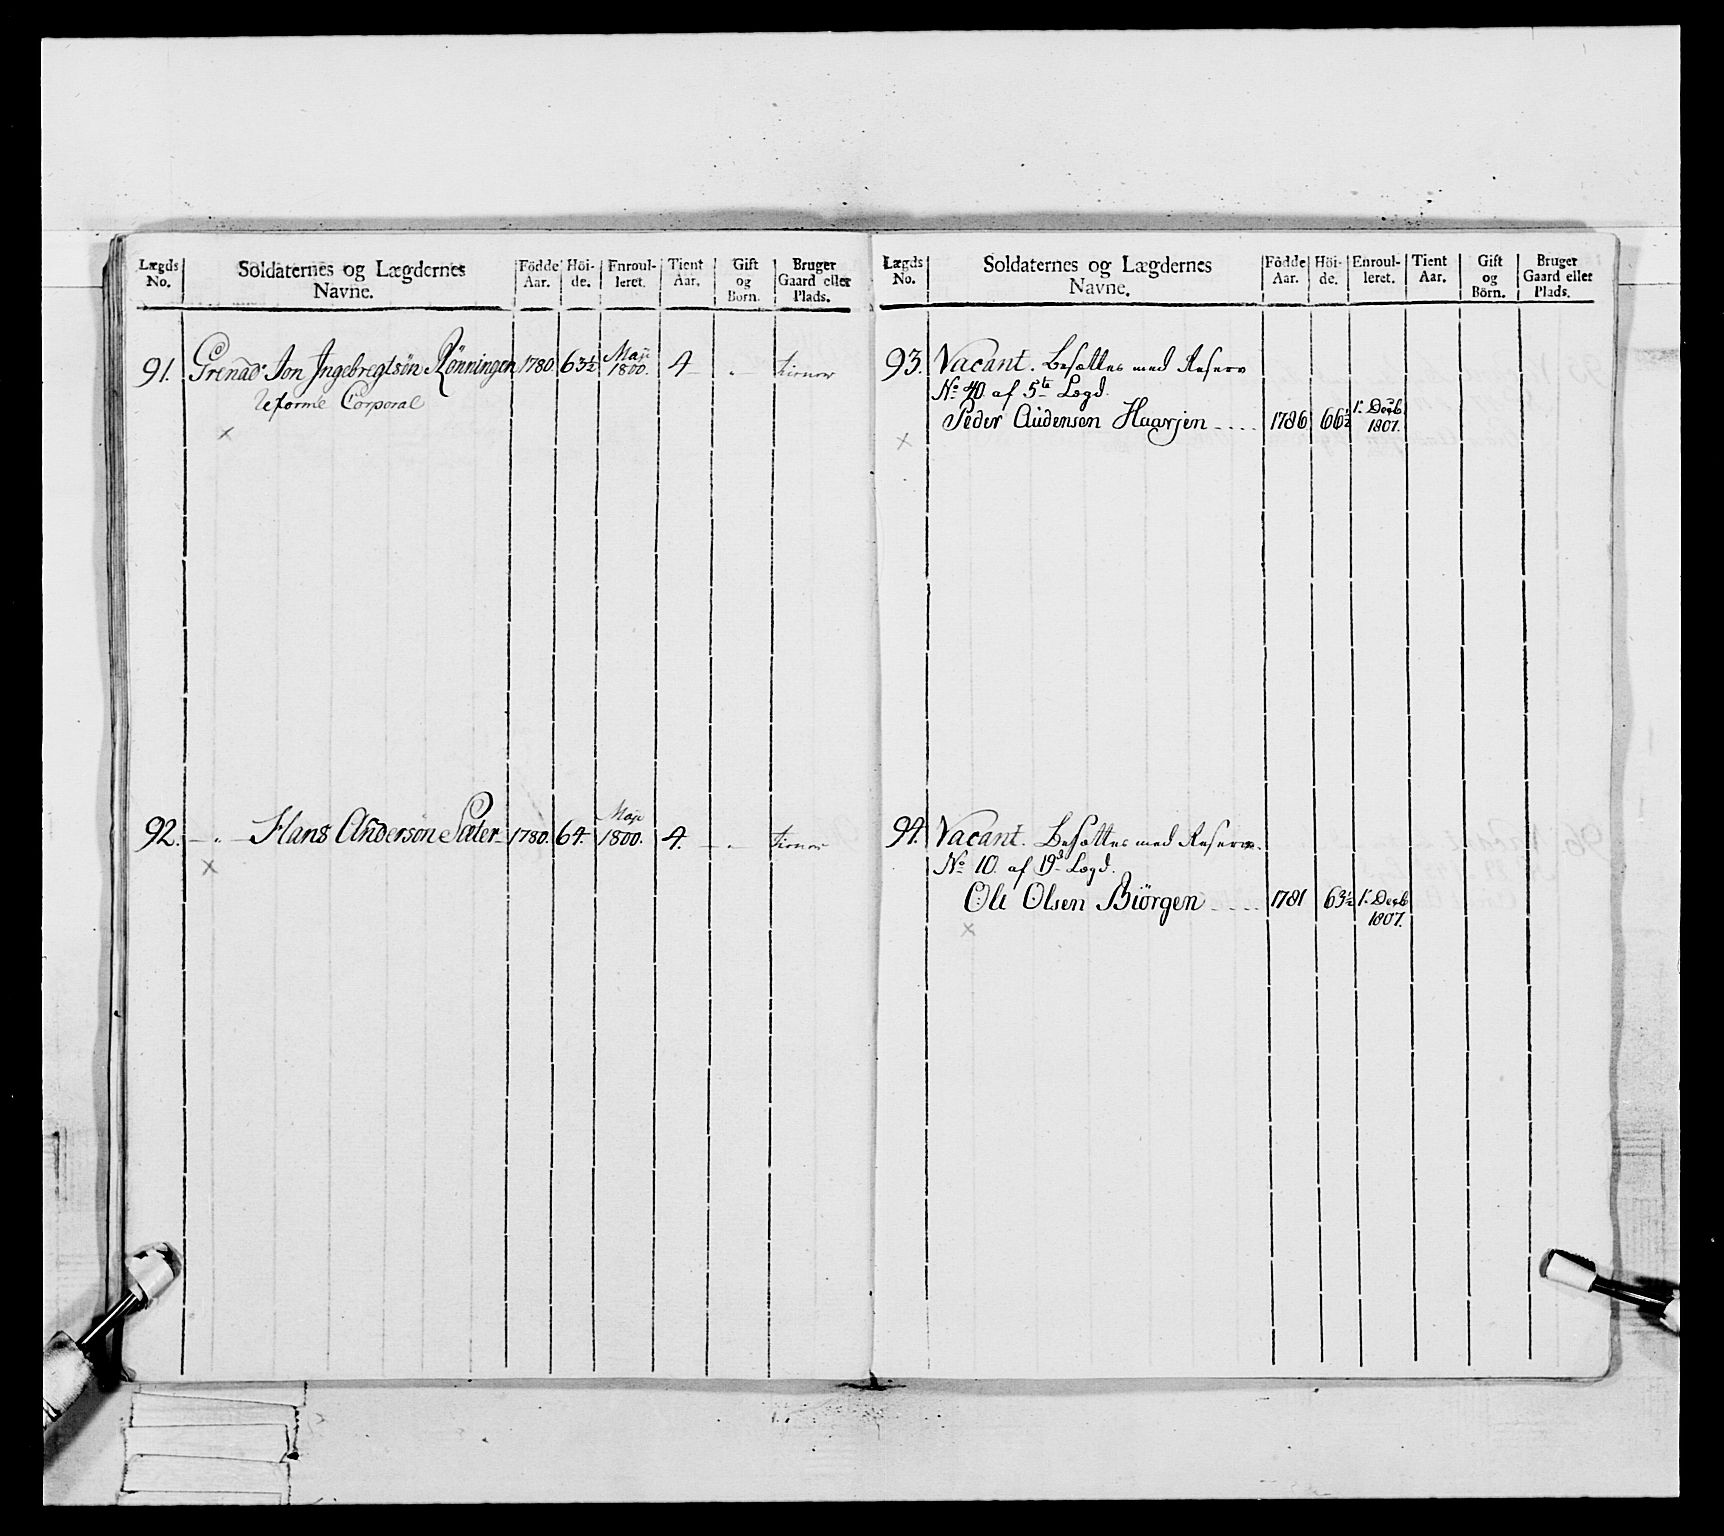 Lægds No. Soldaternes og Lægdernes Navne. Födde Aar. Höi-de. Enroul-leret. Tient Aar. Gift og Börn. Bruger Gaard eller Plads.
Maji
91. Grenadr Jon Ingebregtsön Rönningen 1780 63½ 1800. 4 — " tienner
Reformé Corporal
×
Maji
92. — " — Hans Andersön Sæter 1780. 64. 1800. 4. — " tienner
×
Lægds No. Soldaternes og Lægdernes Navne. Födde Aar. Höi-de. Enroul-leret. Tient Aar. Gift og Börn. Bruger Gaard eller Plads.
93. Vacant. Besættes med Reserv
No 40 af 5te Lægd.
Peder Audensen Haarjen 1786 66½ 1. Decb 1807.
×
94. Vacant. Besættes med Reserv.
No 10. af 19d Lægd.
Ole Olsen Biörgen 1781 63½ 1. Decb 1807.
×